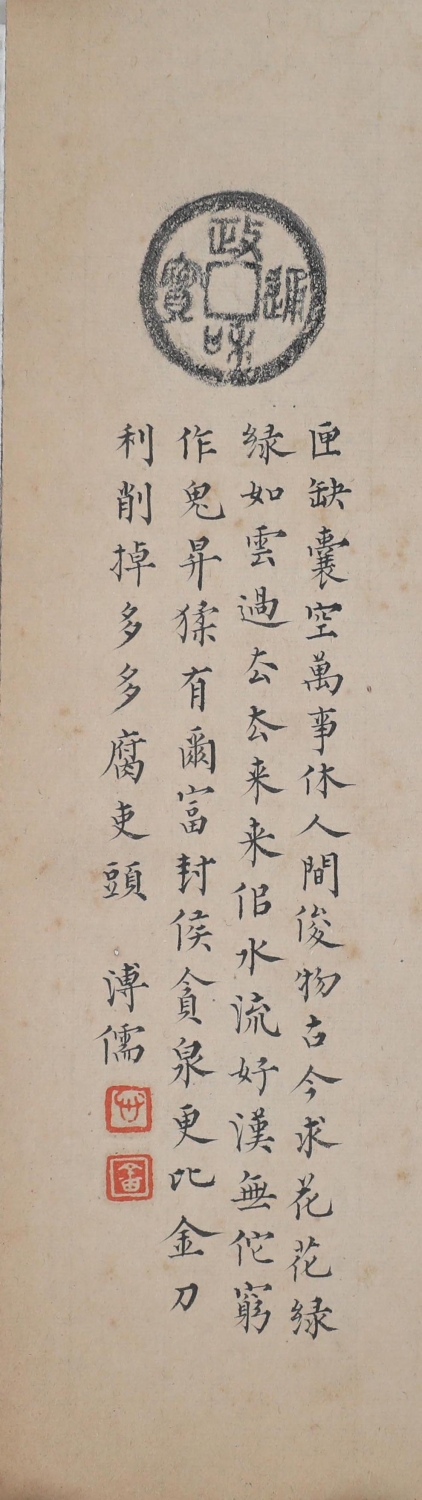 政和通寶
匣缺囊空萬事休人間俊物古今求花花綠
綠如雲過厺厺来来佀水流好漢無佗窮
作鬼昇猱有爾富封侯貪泉更比金刀
利削掉多多腐吏頭 溥儒